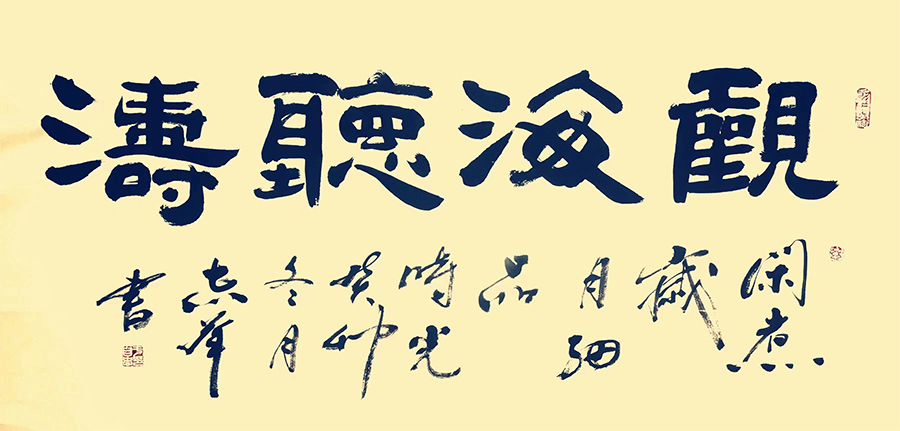 觀海聽濤
閑煮
歲
月細
品
時光
癸卯
冬月
志峰
書